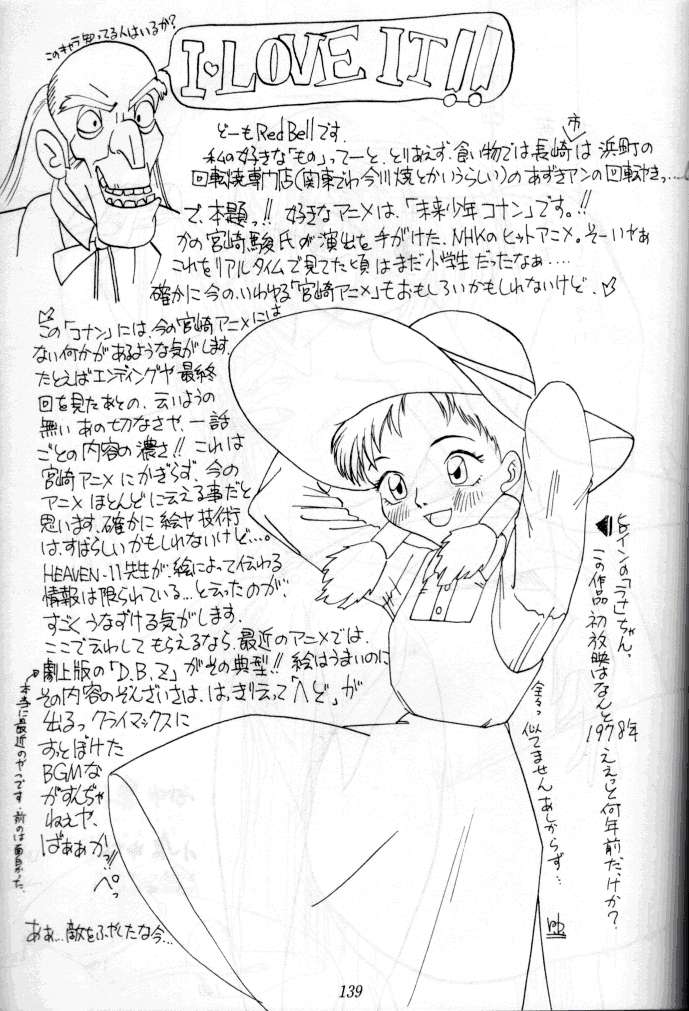 このキャラ知ってる人はいるか?
I♥LOVE IT!!
どーもRed Bellです.
私の好きな「もの」ってーと、とりあえず.食い物では長崎市は浜町の
回転焼専門店(関東でわ今川焼とかいうらしい)のあずきアンの回転やきっ…
で、本題っ!! 好きなアニメは、「未来少年コナン」です。!!
かの宮崎駿氏が演出を手がけた、NHKのヒットアニメ。そーいやぁ
これをリアルタイムで見てた頃はまだ小学生だったなぁ....
確かに今の.いわゆる「宮崎アニメ」もおもしろいかもしれないけど.
この「コナン」には、今の宮崎アニメには
ない何かがあるような気がします.
たとえばエンディングや最終
回を見たあとの、云いようの
無いあの切なさや、一話
ごとの内容の濃さ!! これは
宮崎アニメにかぎらず、今の
アニメほとんどに云える事だと
思います.確かに絵や技術
は、すばらしいかもしれないけど…。
HEAVEN-11先生が、絵によって伝わる
情報は限られている…と云ったのが、
すごくうなずける気がします.
ここで云わしてもらえるなら、最近のアニメでは、
劇上版の「D.B.Z」がその典型!! 絵はうまいのに
その内容のぞんざいさは、はっきり云って「へど」が
出るっクライマックスに
すっとぼけた
BGMな
がすんぢゃ
ねぇや、
ばぁぁかっ!!
ペっ
本当に最近のやつです.前のは面白かった.
ああ…敵をふやしたな今…
◀ヒロインの「ラナ」ちゃん.
この作品初放映はなんと1978年
ええっと何年前だっけか?
余るっ似てませんあしからず…
139